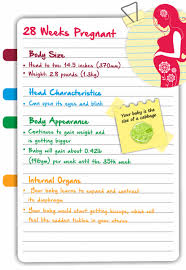 28 Weeks Pregnant
Body Size
Head to toe 14.5 inches (370mm)
Weight 2.8 pounds (1.3kg)
Head Characteristics
Can open its eyes and blink
Your baby is the
size of a cabbage
Body Appearance
Continue to gain weight and
is getting bigger
Baby will gain about 0.42lb
(196gm) per week until the 35th
week
Internal Organs
Your baby learns to expand and contract
its diaphragm
Your baby would start getting hiccups, which will
feel like sudden tickles in your uterus